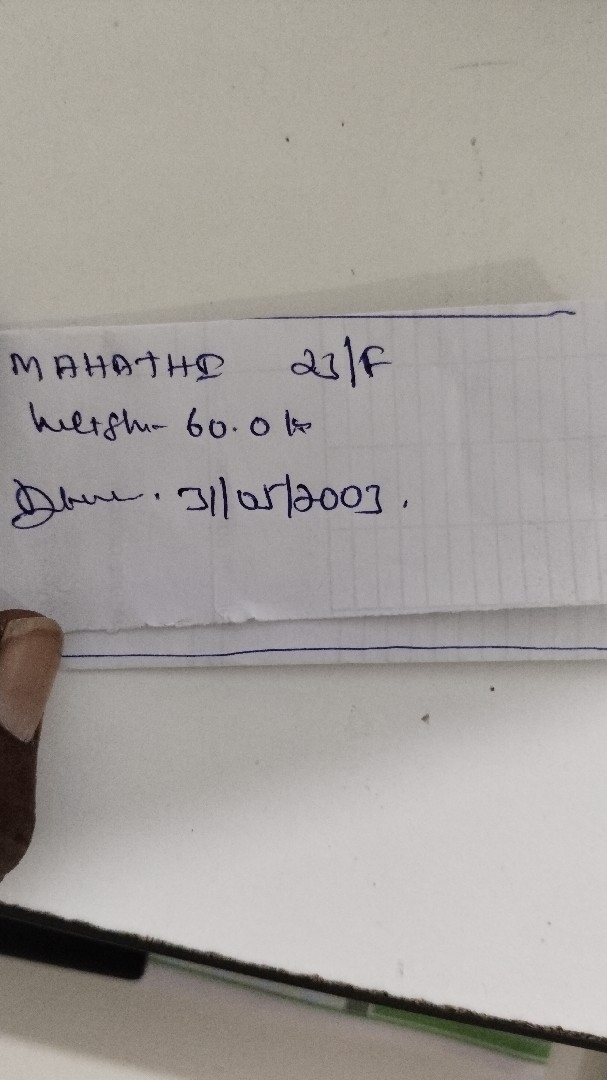 MAHATHI 23/F
Weight- 60.0 k
31/05/2003.